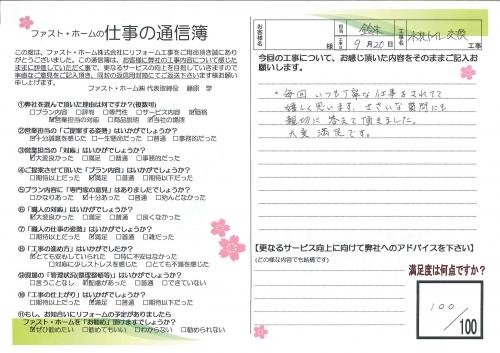 ファスト・ホームの仕事の通信簿
この度は、ファスト・ホーム株式会社にリフォーム工事をご用命頂き誠にありがとうございました。この通信簿は、お客様に弊社の工事内容について感じたままに評価していただく事で、更なるサービスの向上を目指していきますので率直なご意見をご記入頂き、同封の返信用封筒にてご返送下さいます様お願い申し上げます。
ファスト・ホーム㈱ 代表取締役 藤原 学
①弊社を選んで頂いた理由は何ですか?(複数可)
□プラン内容 □評判 □専門性 □サービス内容 ☑価格
☑営業担当の対応 □商品説明 □当社の提案
②営業担当の「ご提案する姿勢」はいかがでしょうか?
☑十分誠意を感じた □一生懸命だった □普通 □事務的だった
③営業担当の「対応」はいかがでしょうか?
☑大変良かった □満足 □普通 □事務的だった
④ご提案させて頂いた「プラン内容」はいかがでしょうか?
□期待以上だった ☑満足 □普通 □期待以下だった
⑤プラン内容に「専門家の意見」はありましたでしょうか?
□かなりあった ☑十分あった □普通 □殆んどなかった
⑥「職人の対応」はいかがでしょうか?
☑大変良かった □満足 □普通 □良くなかった
⑦「職人の仕事の姿勢」はいかがでしょうか?
□期待以上だった ☑満足 □普通 □雑だった
⑧「工事の進め方」はいかがでしたか?
☑とても安心していられた □特に不安はなかった
□対応に少しストレスを感じた □とても不満を感じた
⑨現場の「管理状況(整理整頓等)」はいかがでしょうか?
□言うことなし ☑配慮があった □普通 □できていない
⑩「工事の仕上がり」はいかがでしょうか?
□期待以上だった ☑満足 □普通 □期待以下だった
⑪もし、お知合いにリフォームの予定がありましたら
ファスト・ホームを「お勧め」頂けますでしょうか?
☑ぜひ勧めたい □勧めてもいい □わからない □勧められない
お客様名 様
担当 鈴木
工事日 9月20日
工事名 水洗トイレ交換 工事
今回の工事について、お感じ頂いた内容をそのままご記入お願いします。
・毎回 いつも丁寧な仕事をされてて
嬉しく思います。ささいな質問にも
親切に答えて頂きました。
大変満足です。
【更なるサービス向上に向けて弊社へのアドバイスを下さい】
(どの様な内容でも結構です)
満足度は何点ですか?
100/100